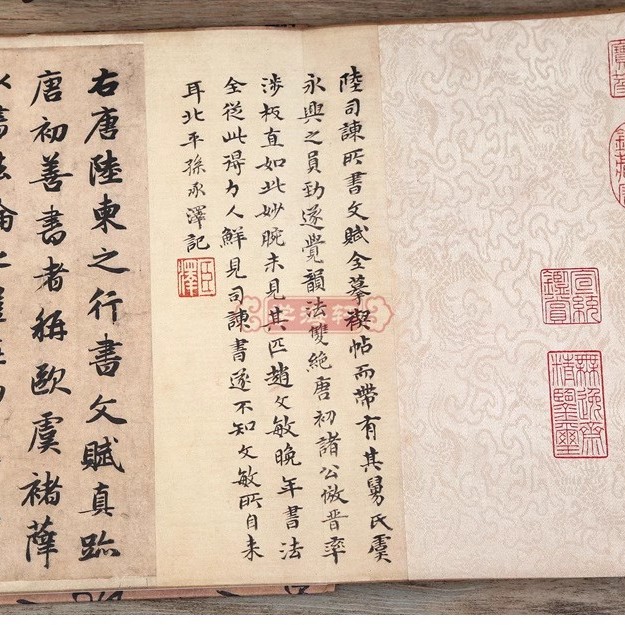 宣統
鑑賞
無逸齋
精鑒璽
陸司諫所書文賦全摹禊帖而帶有其舅氏虞
永興之員勁遂覺韻法雙絕唐初諸公倣晉率
涉板直如此妙腕未見其匹趙文敏晚年書法
全從此得力人鮮見司諫書遂不知文敏所自来
耳北平孫承澤記
臣澤
右唐陸柬之行書文賦真跡
唐初善書者稱歐虞褚薛
以書法論之